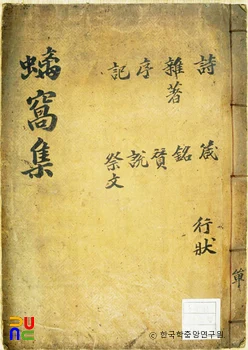 螭窩集
詩 雜著 序 記
箴 銘 贊 說 祭文
行狀
單
ⓒ 한국학중앙연구원